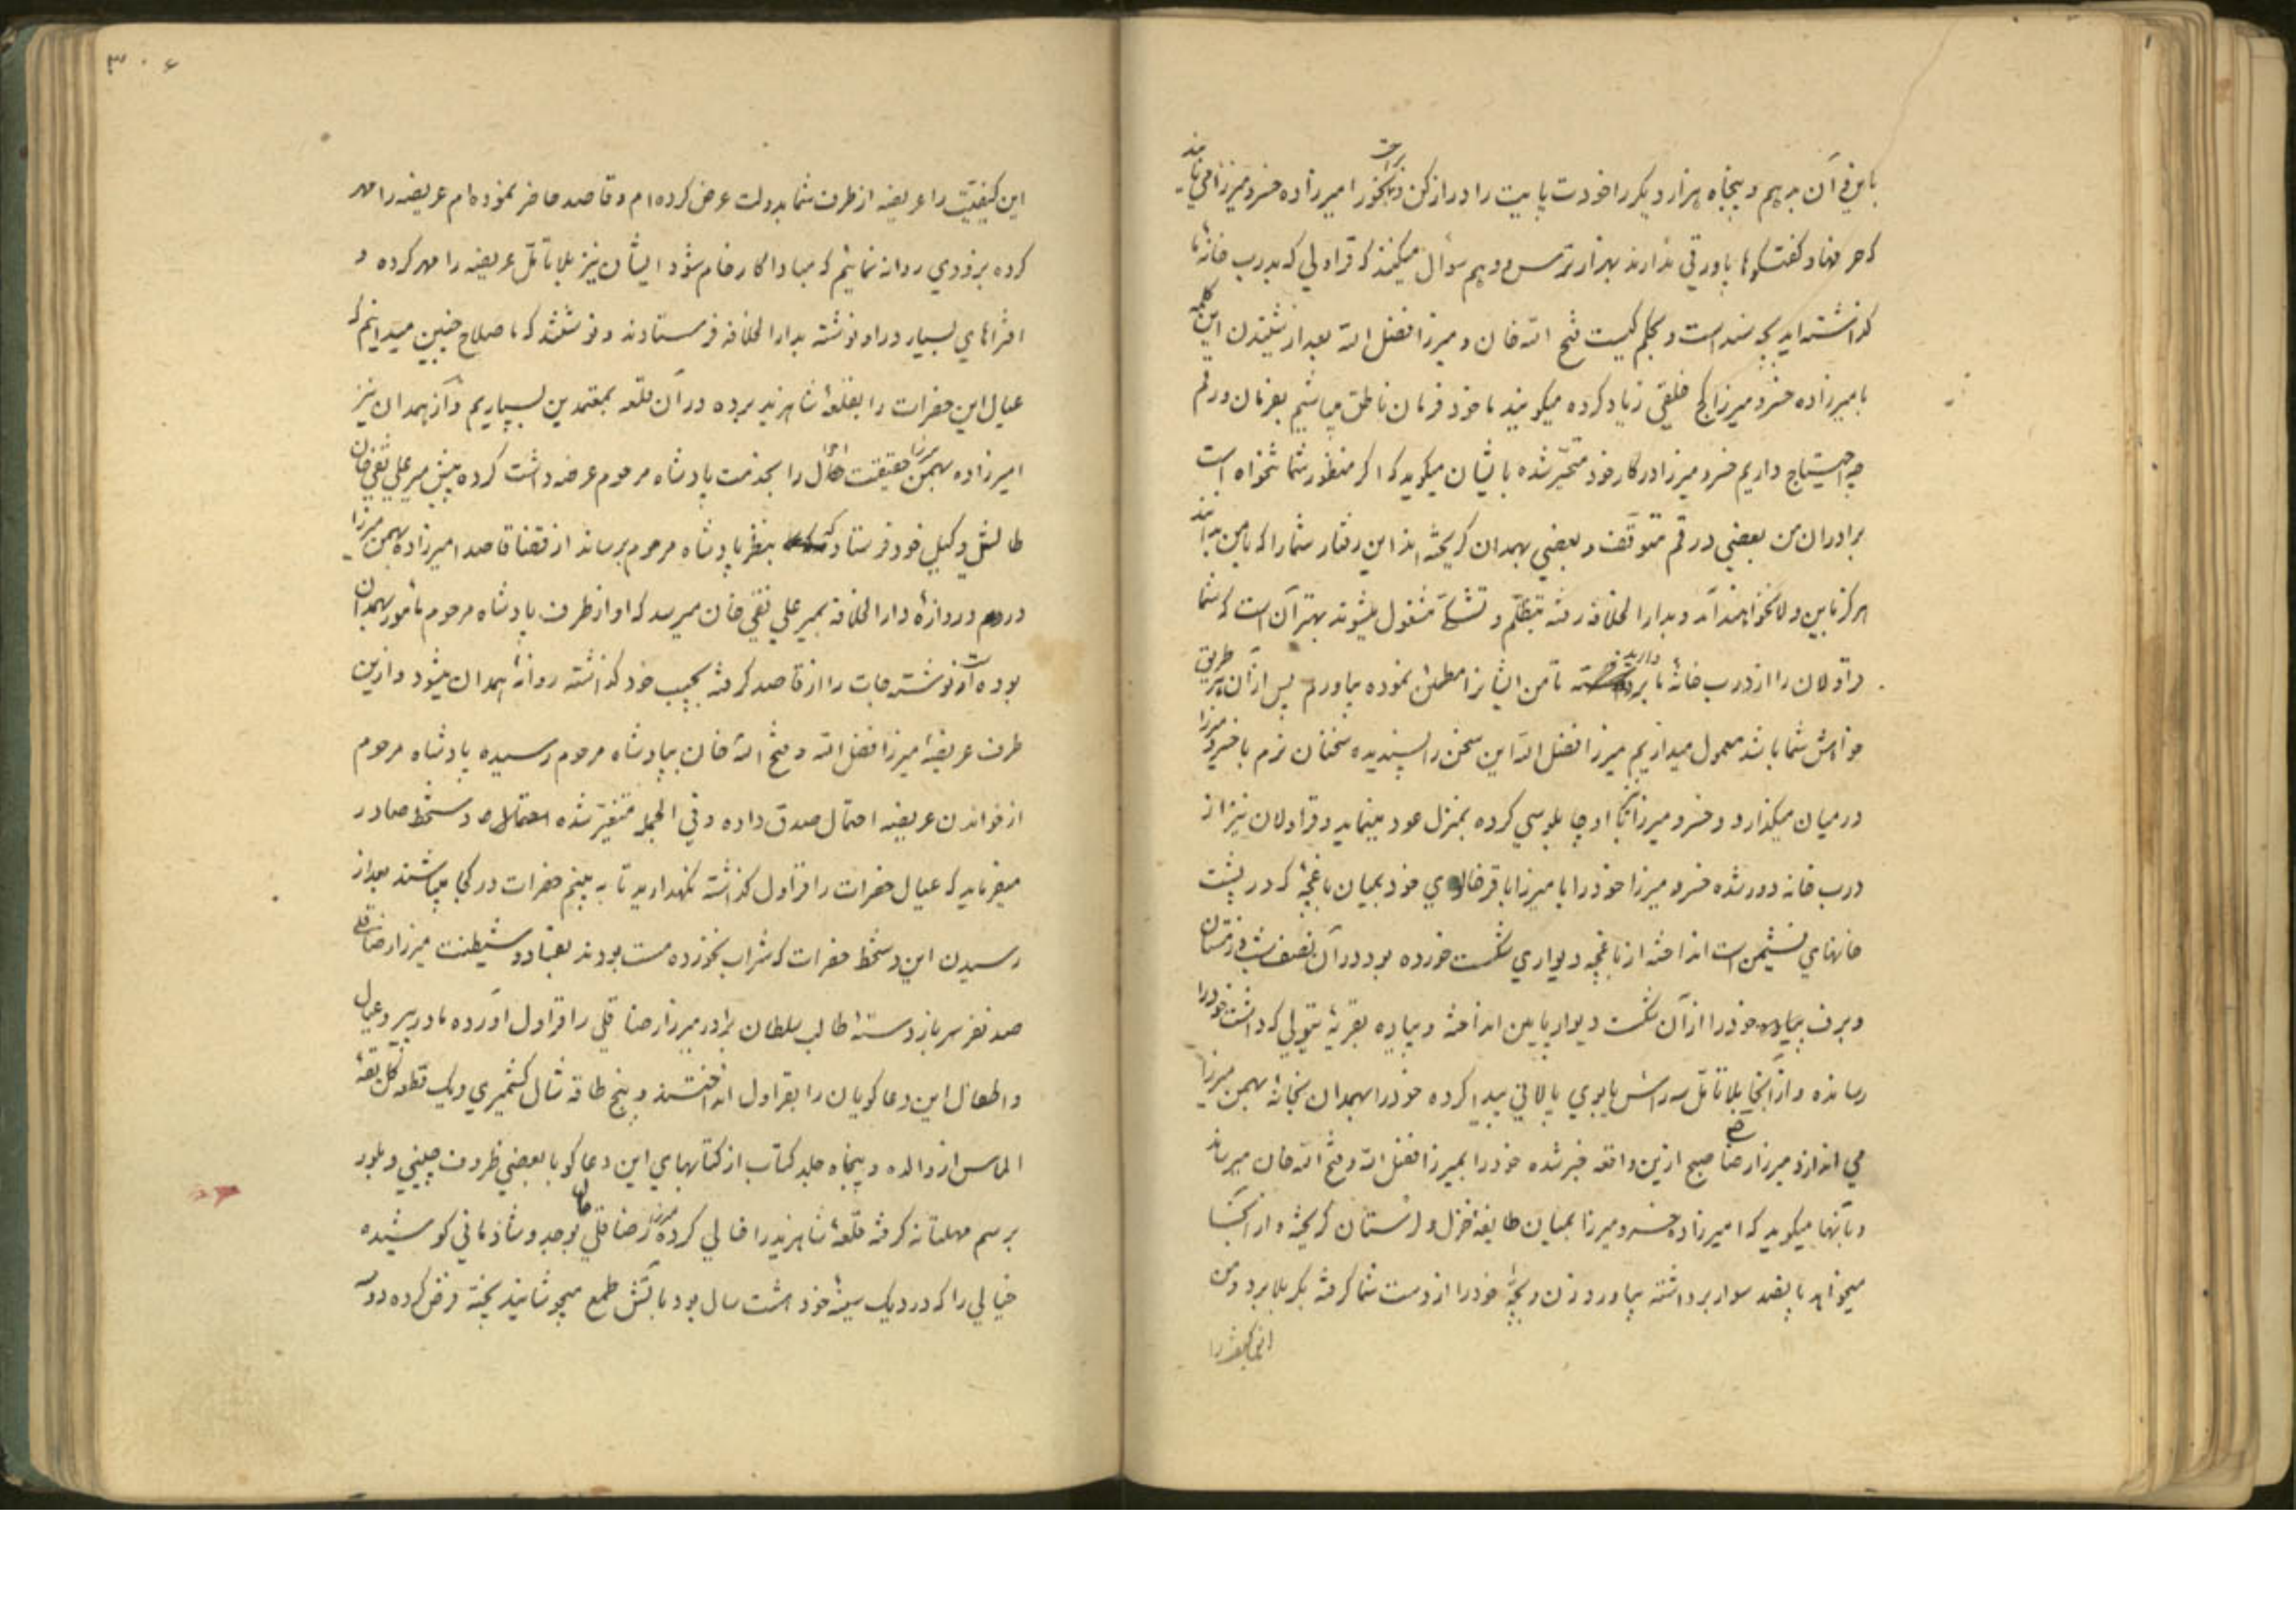 باین و آن بدهیم و پنجاه هزار دیگر را خودت پایت را دراز کن و براحت بخور امیرزاده خسرو میرزا می‌بیند
که حرفها و گفتگوها باو رقی ندارند بهزار ترس و بیم سوال میکنند که قراولی که بدرب خانهٔ ما
گذاشته‌اید بچه سند است و بحکم کیست فتح الله خان و میرزا فضل الله بعد از شنیدن این کلمه
بامیرزاده خسرو میرزا کج خلقی زیاد کرده میگویند ما خود فرمان ناطق میباشیم بفرمان و رقم
چه احتیاج داریم خسرو میرزا در کار خود متحیّر شده بایشان میگوید که اگر منظور شما تنخواه است
برادران من بعضی در قم متوقف و بعضی بهمدان گریخته‌اند این رفتار شما را که با من بدانند
هرگز باین ولا نخواهند آمد و بدار الخلافه رفته بتظلّم و تشکّی مشغول میشوند بهتر آن است که شما
قراولان را از درب خانهٔ ما بردارید تا من ایشانرا مطمئن نموده بیاورم پس از آن بهر طریق
خواهش شما باشد معمول میداریم میرزا فضل الله این سخن را پسندیده سخنان نرم با خسرو میرزا
در میان میگذارد و خسرو میرزا نیز با او چاپلوسی کرده بمنزل عود مینماید و قراولان نیز از
درب خانه دور شده خسرو میرزا خود را با میرزا باقر خالوی خود بمیان باغچهٔ که در پشت
خانهای نشیمن است انداخته از باغچه دیواری شکست خورده بود در آن نصف شب زمستان
و برف پیاده خود را از آن شکست دیوار پایین انداخته و پیاده بقریهٔ تیولی که داشت خود را
رسانده و از آنجا بلا تامّل سه راس یابوی پالانی پیدا کرده خود را بهمدان بخانهٔ بهمن میرزا
می اندازد میرزا رضا قلی صبح ازین واقعه خبر شده خود را بمیرزا فضل الله و فتح الله خان میرساند
و بآنها میگوید که امیرزاده خسرو میرزا بمیان طایفهٔ خزل و لرستان گریخته و از آنجا
میخواهد پانصد سوار برداشته بیاورد و زن و بچهٔ خود را از دست شما گرفته بکربلا برد و من
این کیفیت را
۳۰۶
این کیفیّت را عریضه از طرف شما بدولت عرض کرده‌ام و قاصد حاضر نموده‌ام عریضه را مهر
کرده بزودی روانه نمائیم که مبادا کار خام شود ایشان نیز بلا تامّل عریضه را مهر کرده و
افتراهای بسیار در او نوشته بدار الخلافه فرستادند و نوشتند که ما صلاح چنین میدانیم که
عیال این حضرات را بقلعهٔ شاهزند برده در آن قلعه بمعتمدین بسپاریم و از همدان نیز
امیرزاده بهمن میرزا حقیقت احوال را بخدمت پادشاه مرحوم عرضه داشت کرده پیش میر علی نقی خان
طالش وکیل خود فرستاد که بنظر پادشاه مرحوم برساند از قضا قاصد امیرزاده بهمن میرزا
در دم دروازهٔ دار الخلافه بمیر علی نقی خان میرسد که او از طرف پادشاه مرحوم مأمور بهمدان
بوده است او نوشته جات را از قاصد گرفته بجیب خود گذاشته روانهٔ همدان میشود و ازین
طرف عریضهٔ میرزا فضل الله و فتح الله خان بپادشاه مرحوم رسیده پادشاه مرحوم
از خواندن عریضه احتمال صدق داده و فی الجمله متغیّر شده دستخط صادر
میفرماید که عیال حضرات را قراول گذاشته نگهدارید تا به بینیم حضرات در کجا میباشند بعد از
رسیدن این دستخط حضرات که شراب نخورده مست بودند بفساد و شیطنت میرزا رضا قلی
صد نفر سرباز دستهٔ طالب سلطان برادر میرزا رضا قلی را قراول آورده مادر پیر و عیال
و اطفال این دعا گویان را بقراول انداختند و پنج طاقه شال کشمیری و یک قطعه گل یقهٔ
الماس از والده و پنجاه جلد کتاب از کتابهای این دعا گو با بعضی ظروف چینی و بلور
برسم مهلتانه گرفته قلعهٔ شاهزند را خالی کرده میرزا رضا قلی خان بوجد و شادمانی کوشیده
خیالی را که در دیک سینهٔ خود هشت سال بود بآتش طمع میجوشانید پخته فرض کرده